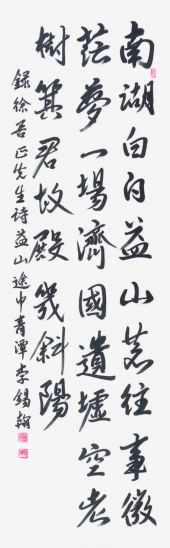 南湖白白益山蒼往事微
茫夢一場濟國遺墟空老
樹箕君故殿幾斜陽
錄徐居正先生詩益山途中青潭李錫翰